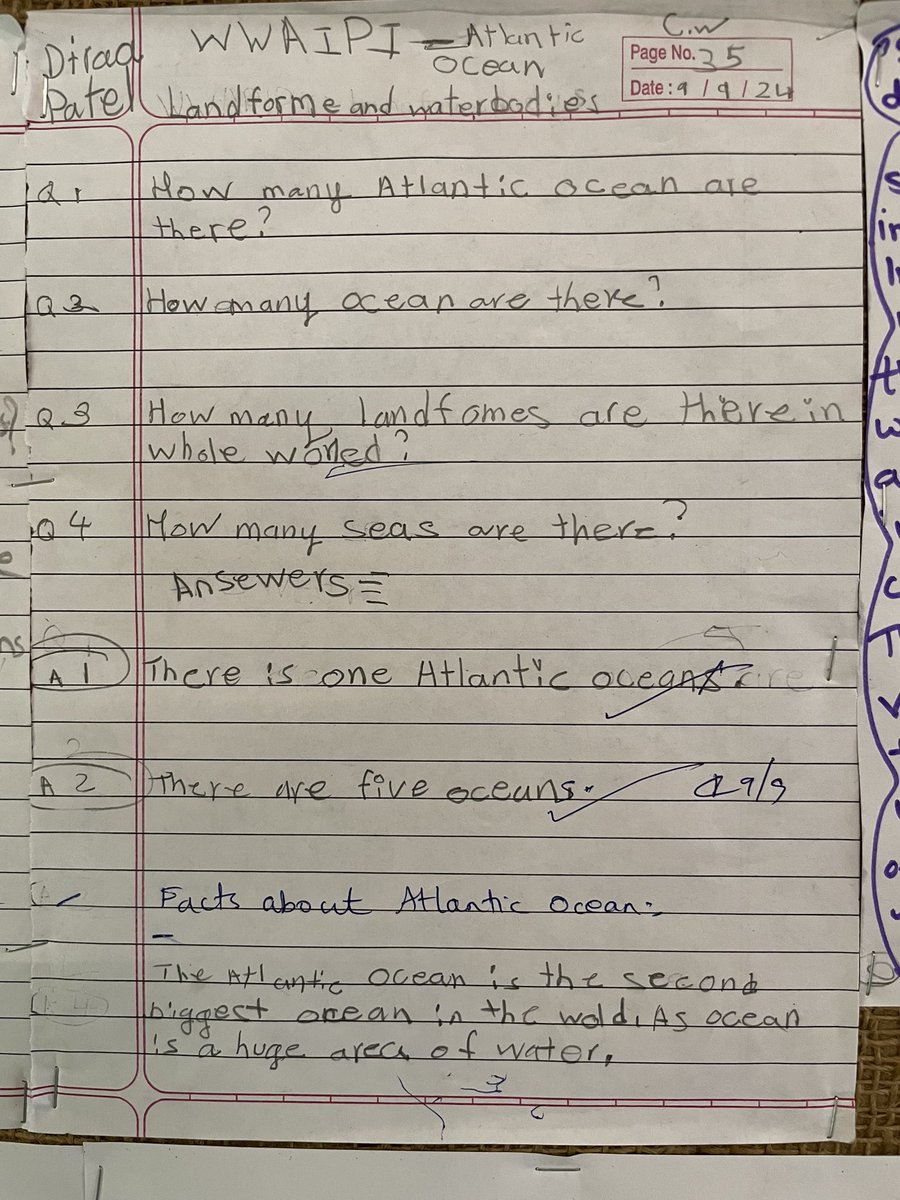 C.W
WWAIPI - Atlantic
Ocean
Page No. 35
Date: 9/9/24
Landforme and waterbodies
Q1 How many Atlantic ocean are
there?
Q2 How many ocean are there?
Q.3 How many landfomes are there in
whole woried?
Q4 How many seas are there?
Ansewers
A 1 There is one Atlantic ocean
A 2 There are five oceans.
9/9
Facts about Atlantic Ocean:-
The Atlantic Ocean is the second
biggest ocean in the wold. As ocean
is a huge area of water.